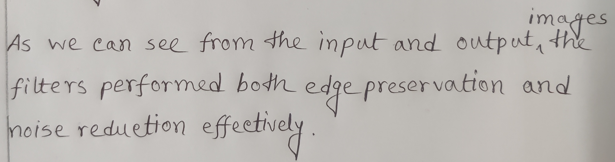 images
As we can see from the input and output, the
filters performed both edge preservation and
noise reduction effectively.